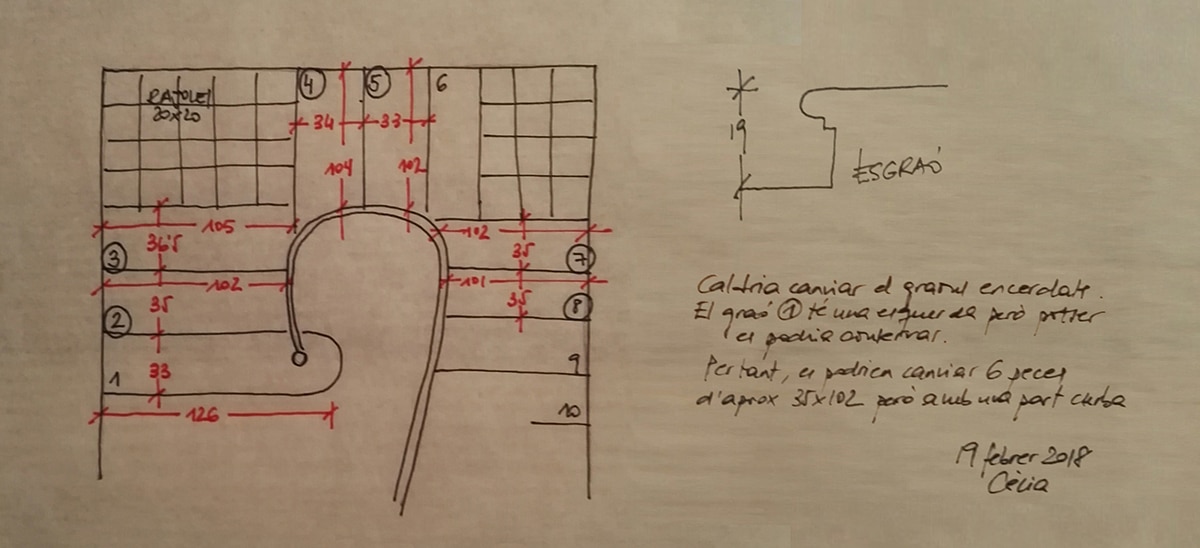 RAJOLES
20x20
4
5
6
34
33
104
102
105
102
3
36'5
35
7
102
101
2
35
35
8
1
33
9
126
10
19
ESGRAÓ
Caldria canviar el graons encerclats.
El graó 1 té una esquerda però potser
es podria conservar.
Per tant, es podrien canviar 6 peces
d'aprox 35x102 però amb una part curba
19 febrer 2018
Cèlia